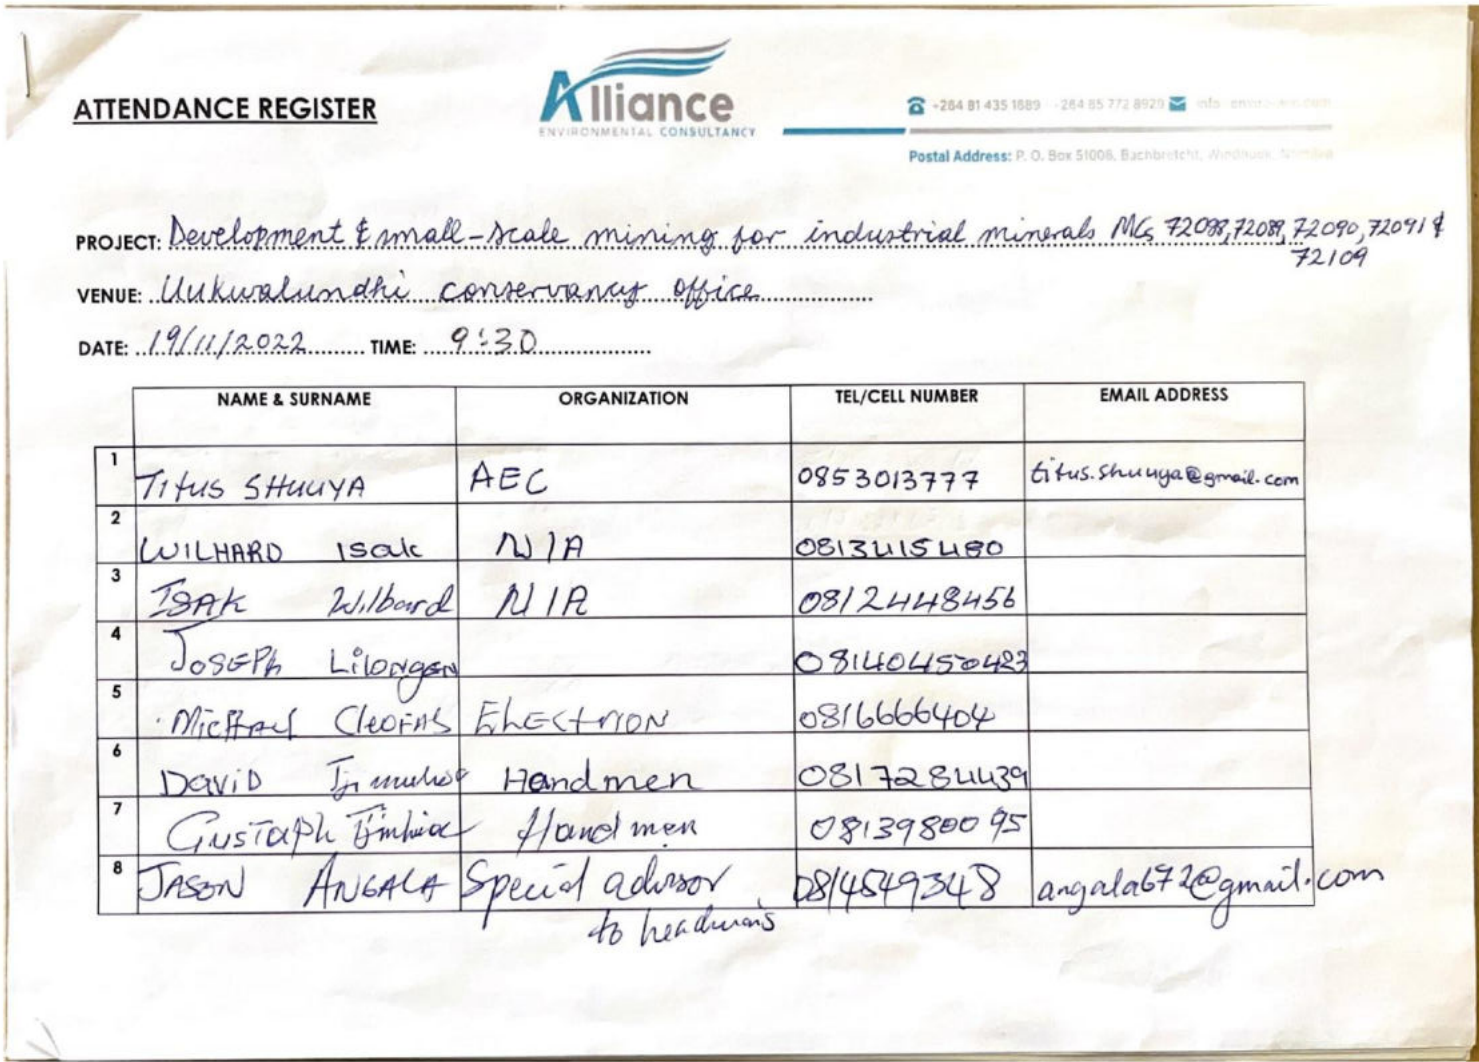 ATTENDANCE REGISTER
Alliance
ENVIRONMENTAL CONSULTANCY
-264 81 435 1689 -264 85 772 8929
Postal Address: P. O. Box 51008, Bachbretcht, Windhoek, Namibia
PROJECT: Development & small-scale mining for industrial minerals MCs 72088, 72089, 72090, 72091 &
72109
VENUE: Uukwalundhi conservancy office
DATE: 19/11/2022 TIME: 9:30
NAME & SURNAME ORGANIZATION TEL/CELL NUMBER EMAIL ADDRESS
1 Titus SHUUYA AEC 0853013777 titus.shuuya@gmail.com
2 WILHARD Isak N/A 0813415480
3 ISAK Wilbard N/A 0812448456
4 JOSEPh Lilongen 08140450423
5 Michael Cleofas 0816666404
6 DaviD Handmen 0817284439
7 GusTaph Handmen 0813980095
8 JASON ANGALA Special advisor 0814549348 angala672@gmail.com
to headman's